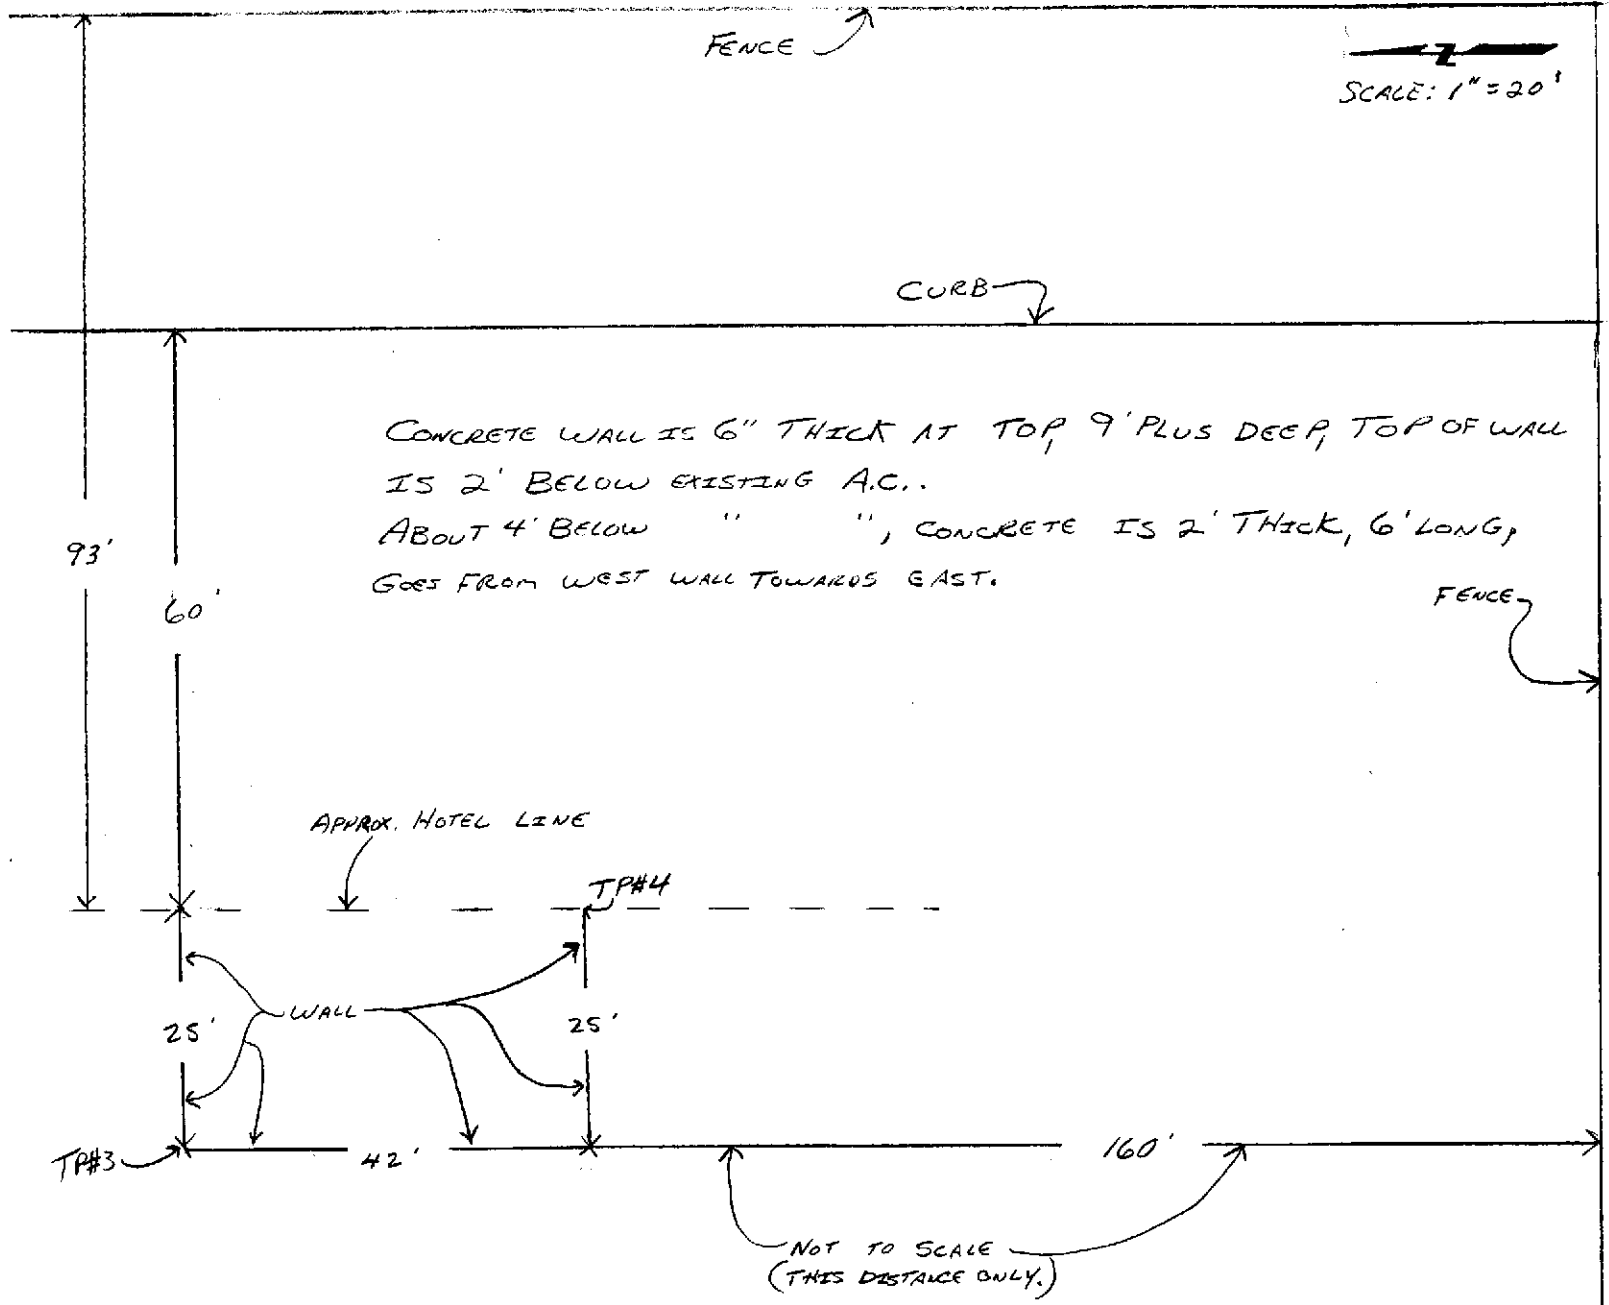 FENCE
Z
SCALE: 1" = 20'
CURB
CONCRETE WALL IS 6" THICK AT TOP, 9' PLUS DEEP, TOP OF WALL
IS 2' BELOW EXISTING A.C..
ABOUT 4' BELOW " ", CONCRETE IS 2' THICK, 6' LONG,
GOES FROM WEST WALL TOWARDS EAST.
93'
60'
FENCE
APPROX. HOTEL LINE
TP#4
WALL
25'
25'
TP#3
42'
160'
NOT TO SCALE
(THIS DISTANCE ONLY.)